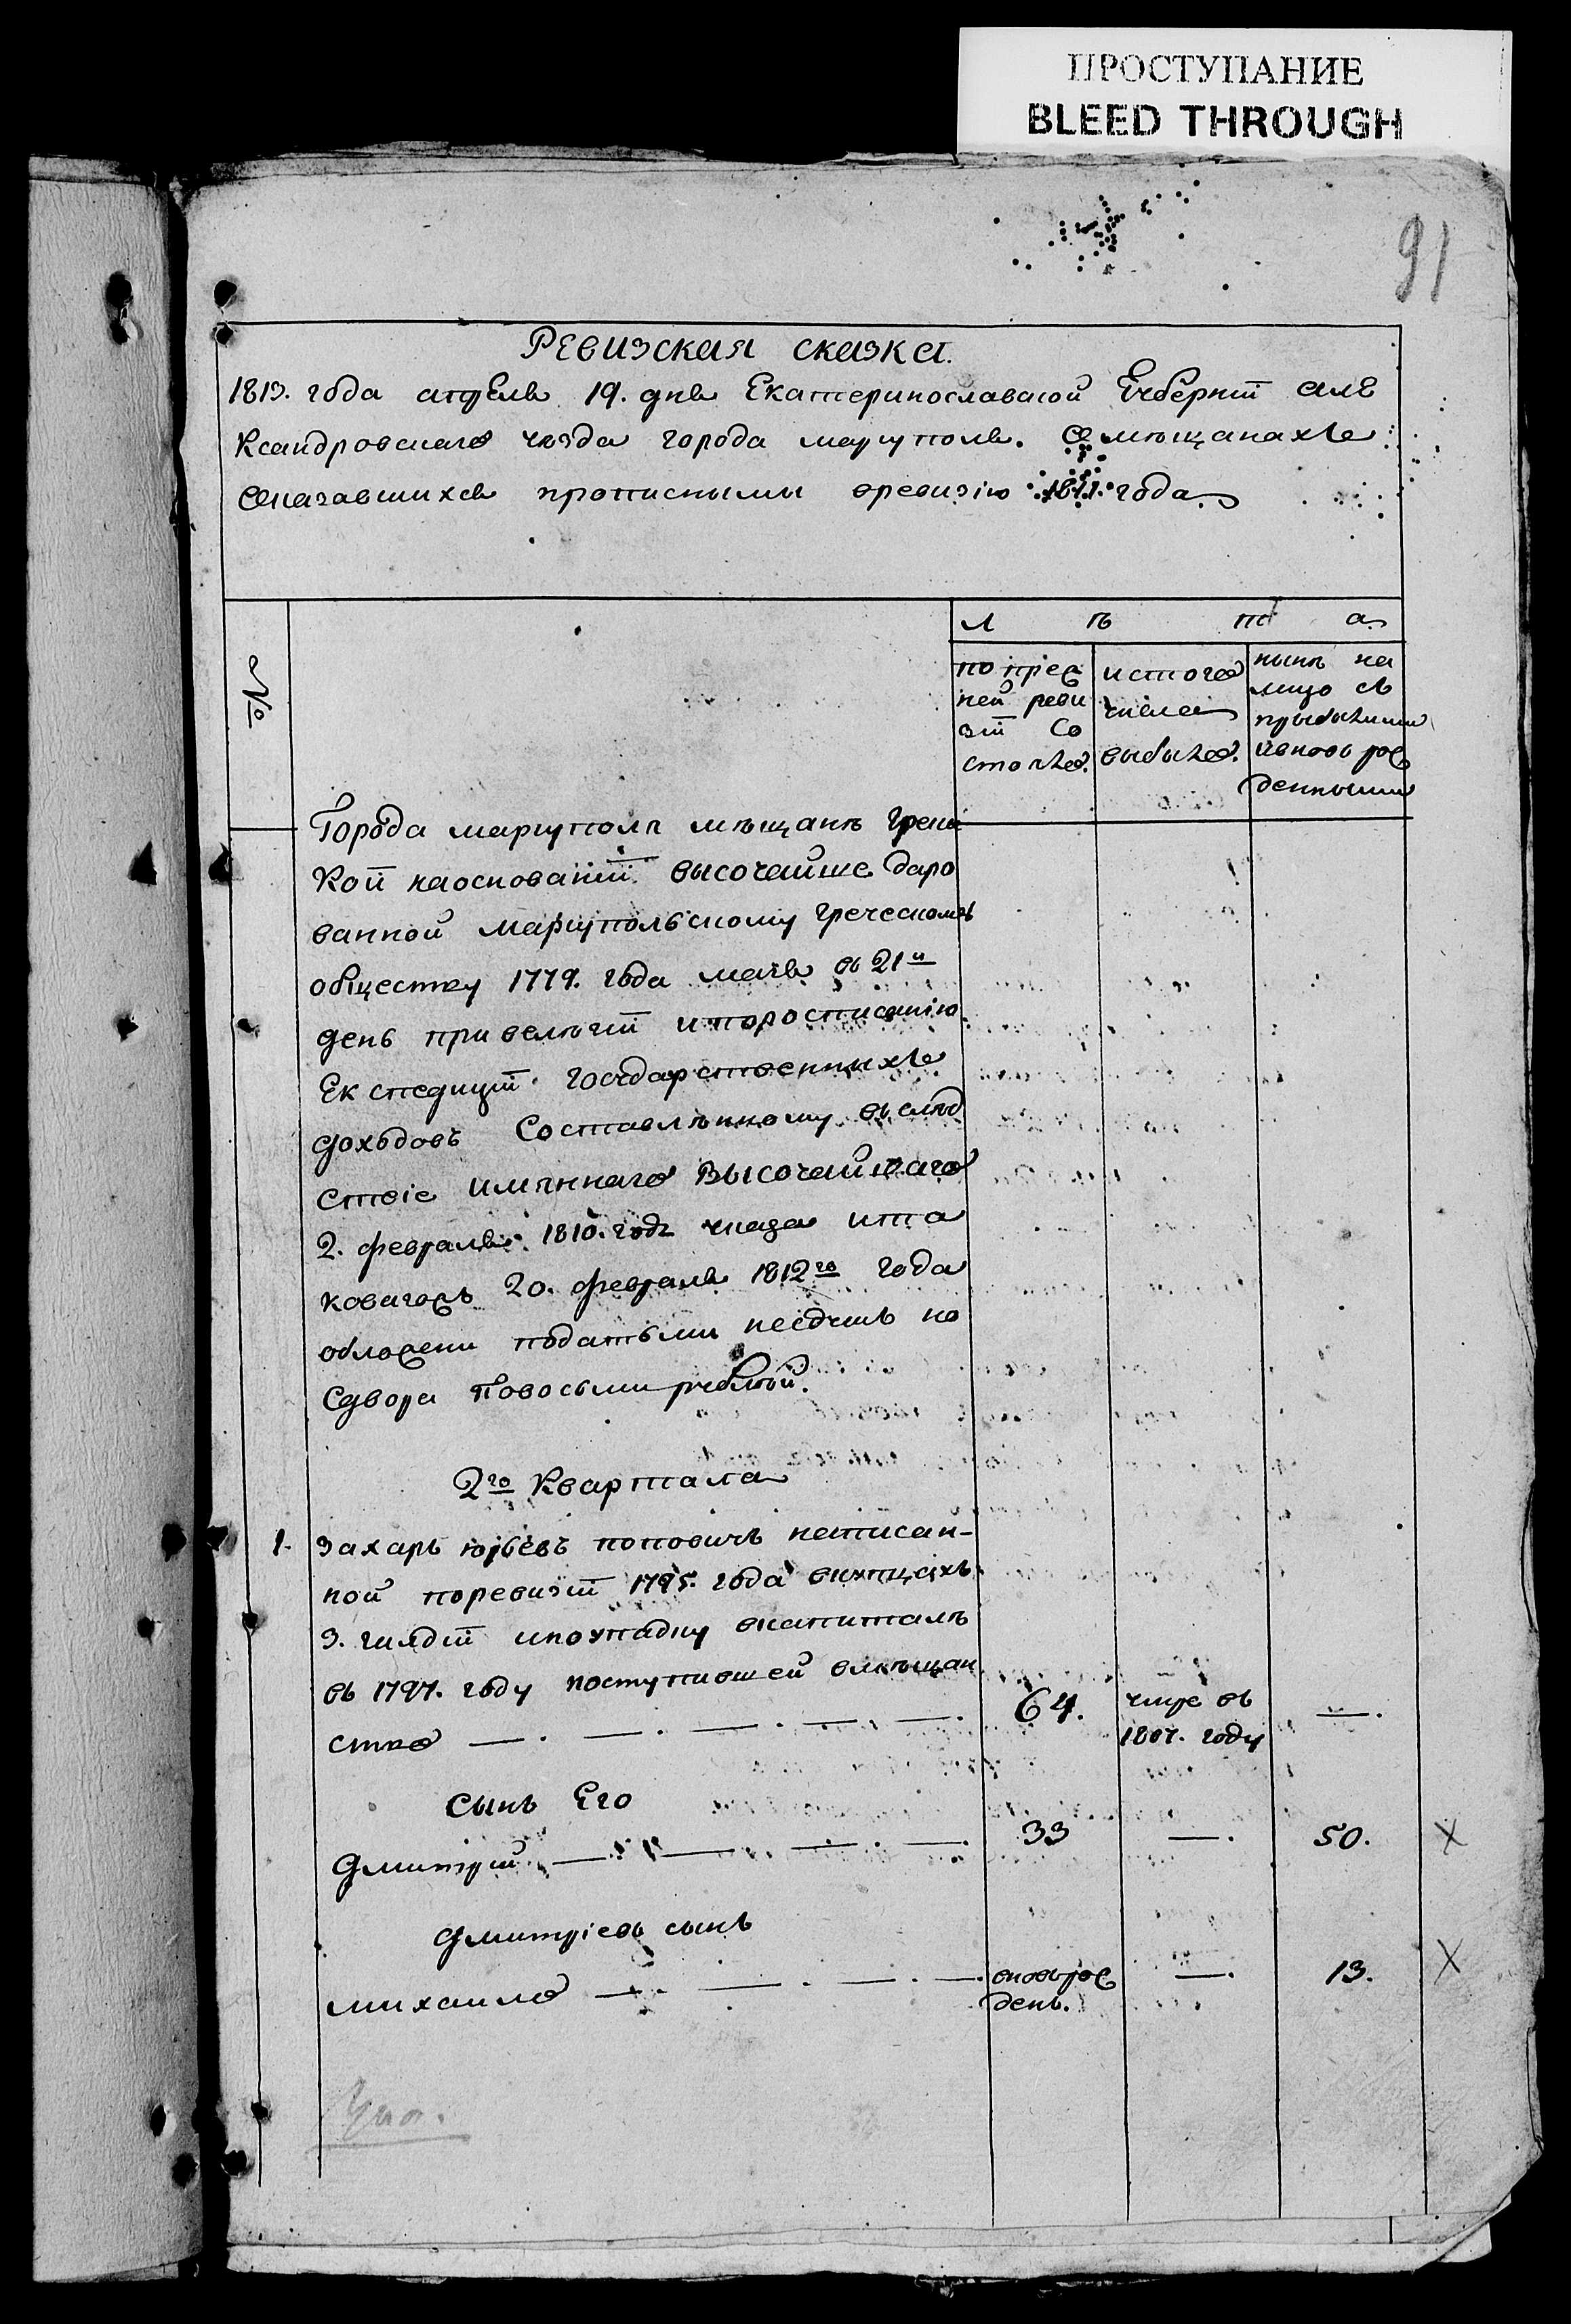 ПРОСТУПАНИЕ
BLEED THROUGH
91
Ревизская сказка.
1813. года апреля 19. дня Екатеринославской Губернїи але
ксандровскаго уезда города мариуполя. О мѣщанахъ
оказавшихся прописными вревизію 1811. года
№
л ѣ т а
по преж
ней реви
зїи со
стояло.
изтого
числа
выбыло.
нынѣ на
лицо съ
прибылыми
ивновь рож
денными
Города мариуполя мѣщанѣ грече
кой наоснованїи высочайше даро
ванной мариупольскому греческому
обществу 1779. года маія въ 21й
день привелѣгїи ипоросписанію
Експедицїи государственныхъ
доходовъ Составлѣнному вслѣд
ствіе имѣннаго Высочайшаго
2. февраля 1810. года указа ита
коваго жъ 20. февраля 1812го года
обложени податьми недушъ но
Сдвора повосьми рублей.
2го Квартала
1. Захарь юрьевъ поповичъ написан-
ной поревизїи 1795. года вкупцахъ
3. гилдїи ипоупадку вкапиталѣ
въ 1797. году поступившей вмѣщан
ство — . — . — . — . — . 64. умре въ — .
1807. году
Сынъ Его
Дмитрїй — . — . — . — . 33 — . 50. X
Дмитріевъ сынъ
михаило — . — . — . — . вновь рож — . 13. X
денъ.